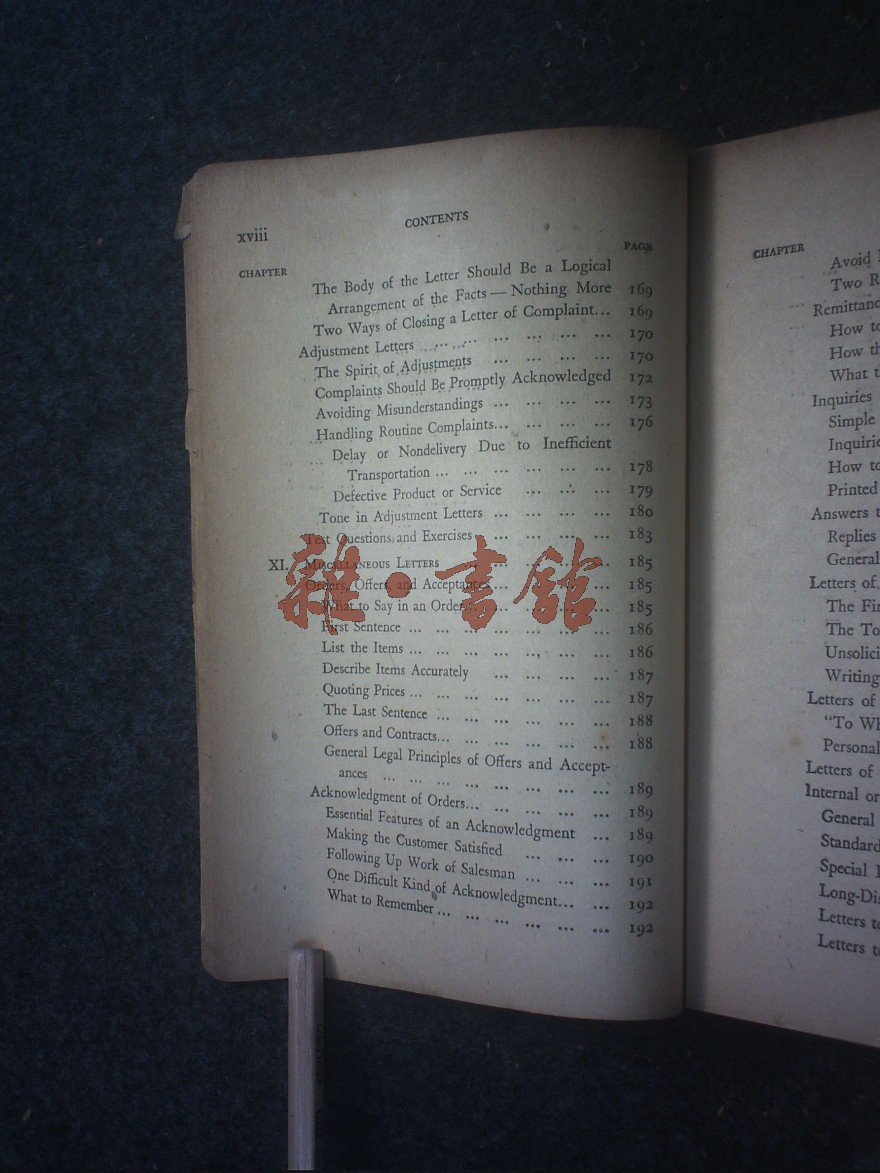 xviii CONTENTS
CHAPTER PAGE
The Body of the Letter Should Be a Logical
Arrangement of the Facts — Nothing More 169
Two Ways of Closing a Letter of Complaint... 169
Adjustment Letters ... ... ... ... ... ... 170
The Spirit of Adjustments ... ... ... ... 170
Complaints Should Be Promptly Acknowledged 172
Avoiding Misunderstandings ... ... ... ... 173
Handling Routine Complaints... ... ... ... 176
Delay or Nondelivery Due to Inefficient
Transportation ... ... ... ... ... ... 178
Defective Product or Service ... ... ... 179
Tone in Adjustment Letters ... ... ... ... 180
Test Questions and Exercises ... ... ... ... 183
XI. Miscellaneous Letters ... ... ... ... 185
Orders, Offers, and Acceptances ... ... ... ... 185
What to Say in an Order ... ... ... ... 185
First Sentence ... ... ... ... ... ... ... 186
List the Items ... ... ... ... ... ... ... 186
Describe Items Accurately ... ... ... ... 187
Quoting Prices ... ... ... ... ... ... ... 187
The Last Sentence ... ... ... ... ... ... 188
Offers and Contracts... ... ... ... ... ... 188
General Legal Principles of Offers and Accept-
ances ... ... ... ... ... ... ... ... 189
Acknowledgment of Orders... ... ... ... ... 189
Essential Features of an Acknowledgment ... 189
Making the Customer Satisfied ... ... ... 190
Following Up Work of Salesman ... ... ... 191
One Difficult Kind of Acknowledgment... ... 192
What to Remember ... ... ... ... ... ... 192
雜·書館
CHAPTER
Avoid
Two R
Remittanc
How to
How th
What t
Inquiries
Simple
Inquirie
How to
Printed
Answers t
Replies
General
Letters of
The Fir
The To
Unsolici
Writing
Letters of
"To Wh
Personal
Letters of
Internal or
General
Standard
Special
Long-Dis
Letters to
Letters to